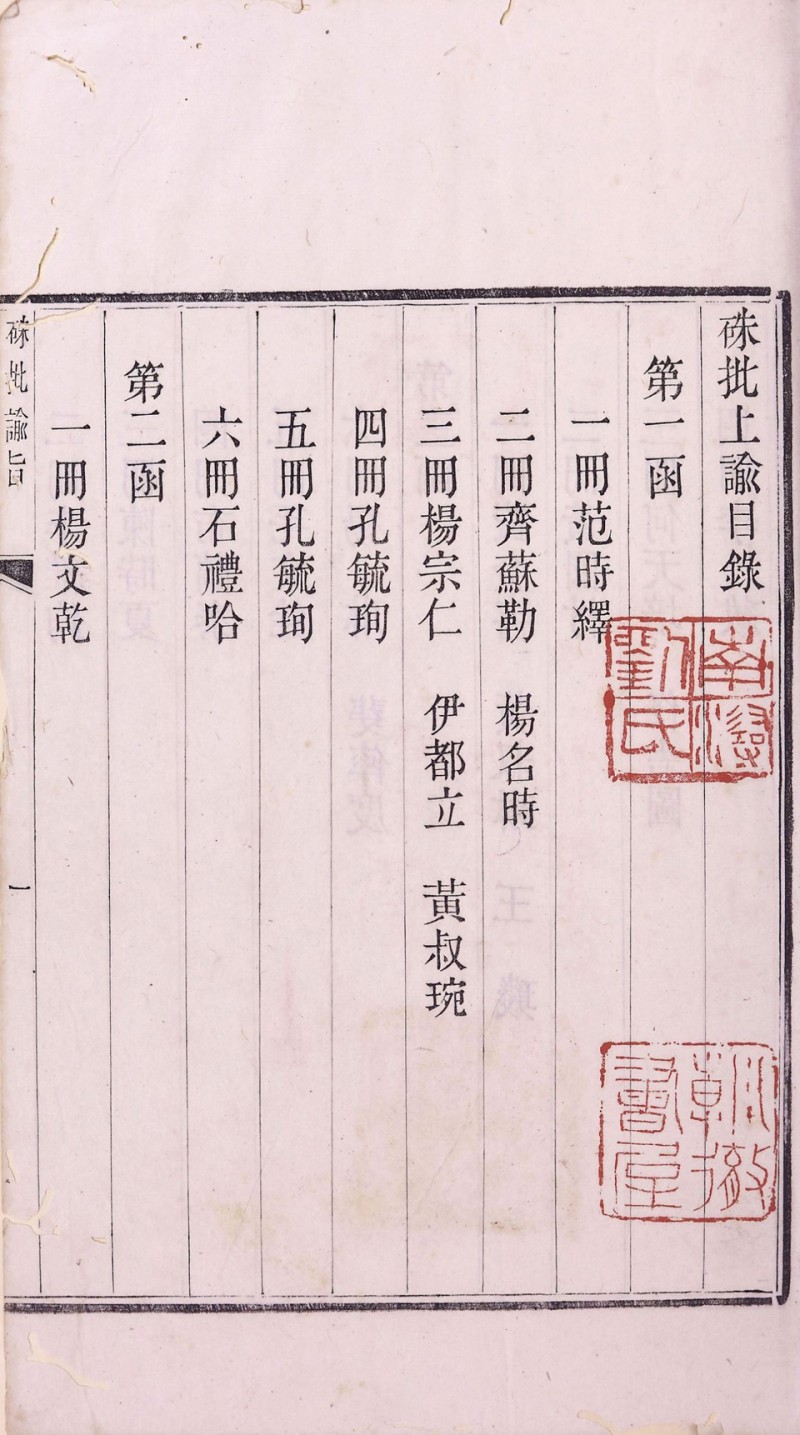 硃批上諭目錄
第一函
一冊范時繹
二冊齊蘇勒　楊名時
三冊楊宗仁　伊都立　黃叔琬
四冊孔毓珣
五冊孔毓珣
六冊石禮哈
第二函
一冊楊文乾
硃批諭旨
一
劉氏
書屋